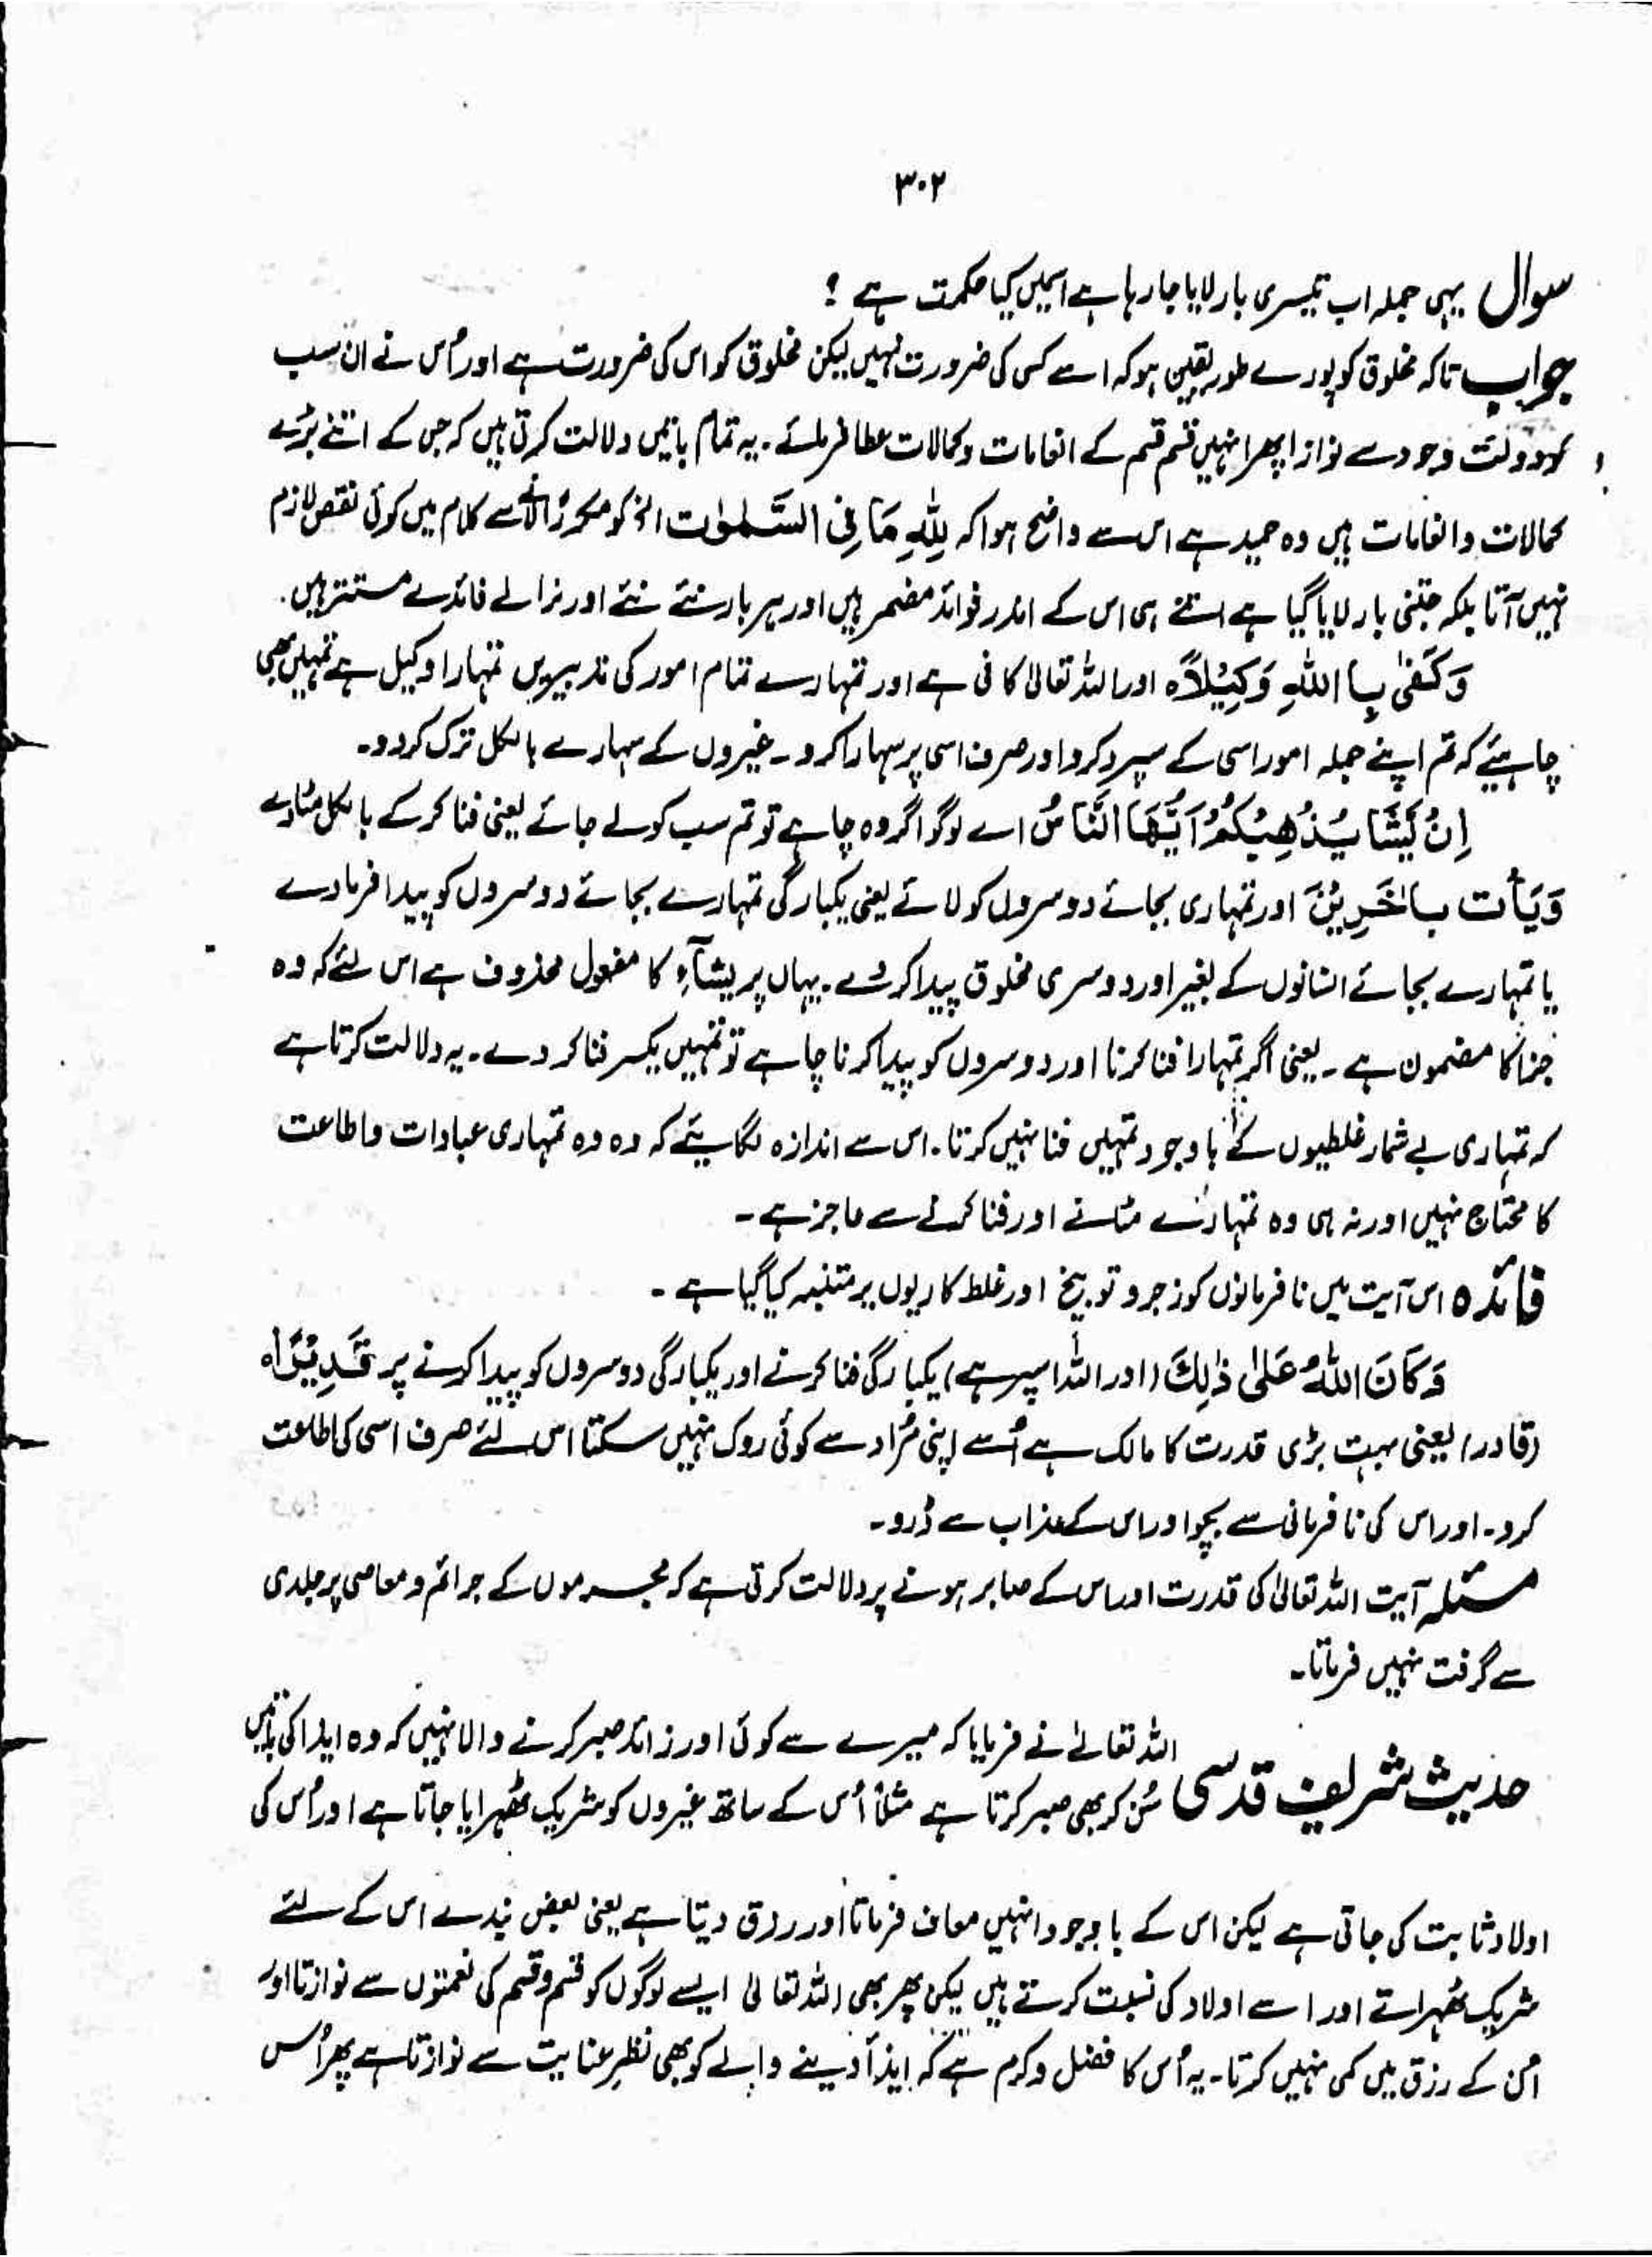 ۳۰۲
سوال یہی جملہ اب تیسری بار لایا جا رہا ہے اسمیں کیا حکمت ہے ؟
جواب تاکہ مخلوق کو پورے طور یقین ہو کہ اسے کسی کی ضرورت نہیں لیکن مخلوق کو اس کی ضرورت ہے اور اُس نے ان سب
کو دولت وجود سے نوازا پھر انہیں قسم قسم کے انعامات و کمالات عطا فرمائے ۔ یہ تمام باتیں دلالت کرتی ہیں کہ جس کے اتنے بڑے
کمالات و انعامات ہیں وہ حمید ہے اس سے واضح ہوا کہ لِلّٰہِ مَا فِی السَّمٰوٰت الخ کو مکرر لانے سے کلام میں کوئی نقص لازم
نہیں آتا بلکہ جتنی بار لایا گیا ہے اتنے ہی اس کے اندر فوائد مضمر ہیں اور ہر بار نئے نئے اور نرالے فائدے مستتر ہیں ۔
وَکَفٰی بِاللّٰہِ وَکِیْلًا۝ اور اللہ تعالیٰ کافی ہے اور تمہارے تمام امور کی تدبیریں تمہارا وکیل ہے تمہیں بھی
چاہیئے کہ تم اپنے جملہ امور اسی کے سپرد کرو اور صرف اسی پر سہارا کرو ۔ غیروں کے سہارے بالکل ترک کر دو ۔
اِنْ یَّشَا یُذْھِبْکُمْ اَیُّھَا النَّاسُ اے لوگو اگر وہ چاہے تو تم سب کو لے جائے یعنی فنا کر کے بالکل مٹا دے
وَیَأْت بِاٰخَرِیْنَ اور تمہاری بجائے دوسروں کو لائے یعنی یکبارگی تمہارے بجائے دوسروں کو پیدا فرما دے
یا تمہارے بجائے انسانوں کے بغیر اور دوسری مخلوق پیدا کر دے ۔ یہاں پر یشآءِ کا مفعول محذوف ہے اس لئے کہ وہ
جزا کا مضمون ہے ۔ یعنی اگر تمہارا فنا کرنا اور دوسروں کو پیدا کرنا چاہے تو تمہیں یکسر فنا کر دے ۔ یہ دلالت کرتا ہے
کہ تمہاری بے شمار غلطیوں کے باوجود تمہیں فنا نہیں کرتا ۔ اس سے اندازہ لگایئے کہ وہ وہ تمہاری عبادات و اطاعت
کا محتاج نہیں اور نہ ہی وہ تمہارے مٹانے اور فنا کرنے سے عاجز ہے ۔
فائدہ اس آیت میں نافرمانوں کو زجر و توبیخ اور غلط کاریوں پر متنبہ کیا گیا ہے ۔
وَکَانَ اللّٰہُ عَلٰی ذٰلِکَ (اور اللہ اسپر ہے) یکبارگی فنا کرنے اور یکبارگی دوسروں کو پیدا کرنے پر قَدِیْرًا۝
(قادر) یعنی بہت بڑی قدرت کا مالک ہے اُسے اپنی مُراد سے کوئی روک نہیں سکتا اس لئے صرف اسی کی اطاعت
کرو ۔ اور اس کی نافرمانی سے بچو اور اس کے عذاب سے ڈرو ۔
مسئلہ آیت اللہ تعالیٰ کی قدرت اور اس کے صابر ہونے پر دلالت کرتی ہے کہ مجرموں کے جرائم و معاصی پر جلدی
سے گرفت نہیں فرماتا ۔
حدیث شریف قدسی اللہ تعالےٰ نے فرمایا کہ میرے سے کوئی اور زائد صبر کرنے والا نہیں کہ وہ ایذا کی باتیں
سُن کر بھی صبر کرتا ہے مثلاً اُس کے ساتھ غیروں کو شریک ٹھہرایا جاتا ہے اور اُس کی
اولاد ثابت کی جاتی ہے لیکن اس کے باوجود انہیں معاف فرماتا اور رزق دیتا ہے یعنی بعض بندے اس کے لئے
شریک ٹھہراتے اور اسے اولاد کی نسبت کرتے ہیں لیکن پھر بھی اللہ تعالیٰ ایسے لوگوں کو قسم و قسم کی نعمتوں سے نوازتا اور
اُن کے رزق میں کمی نہیں کرتا ۔ یہ اُس کا فضل و کرم ہے کہ ایذأ دینے والے کو بھی نظرِ عنایت سے نوازتا ہے پھر اُس